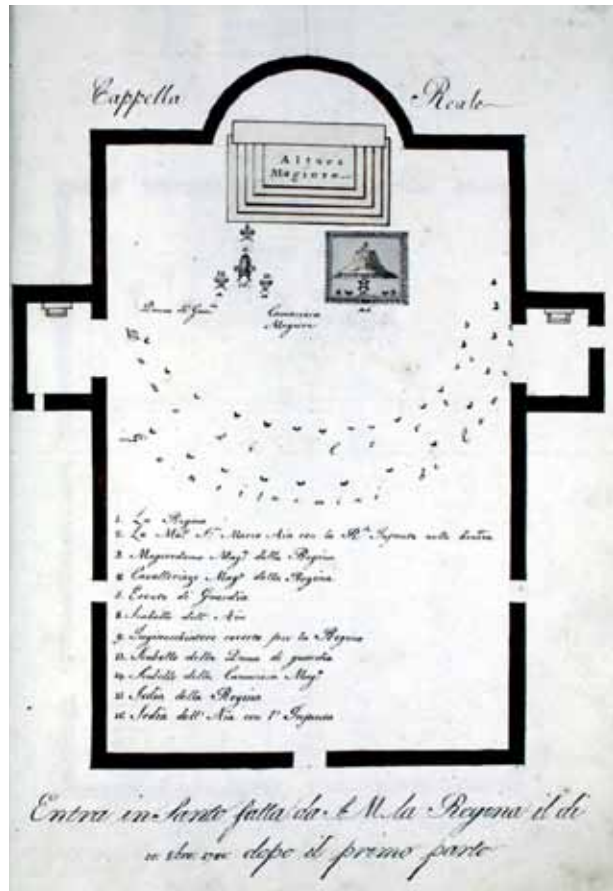 Cappella Reale
Altare
Magiore
Dama di
Camariera
Magiore
1. La Regina
2. La con la Infanta nella destra
3. Magiordomo Mag.e della Regina
4. Cavallerizo Mag.e della Regina
5. Esente di Guardia
8. Scabello dell' Aia
9. Inginocchiatore coverto per la Regina
13. Scabello della Dama di guardia
14. Scabello della Camariera Mag.e
15. Sedia della Regina
16. Sedia dell' Aia con l' Infanta
Entra in Santo fatta da S. M. la Regina il di
dopo il primo parto